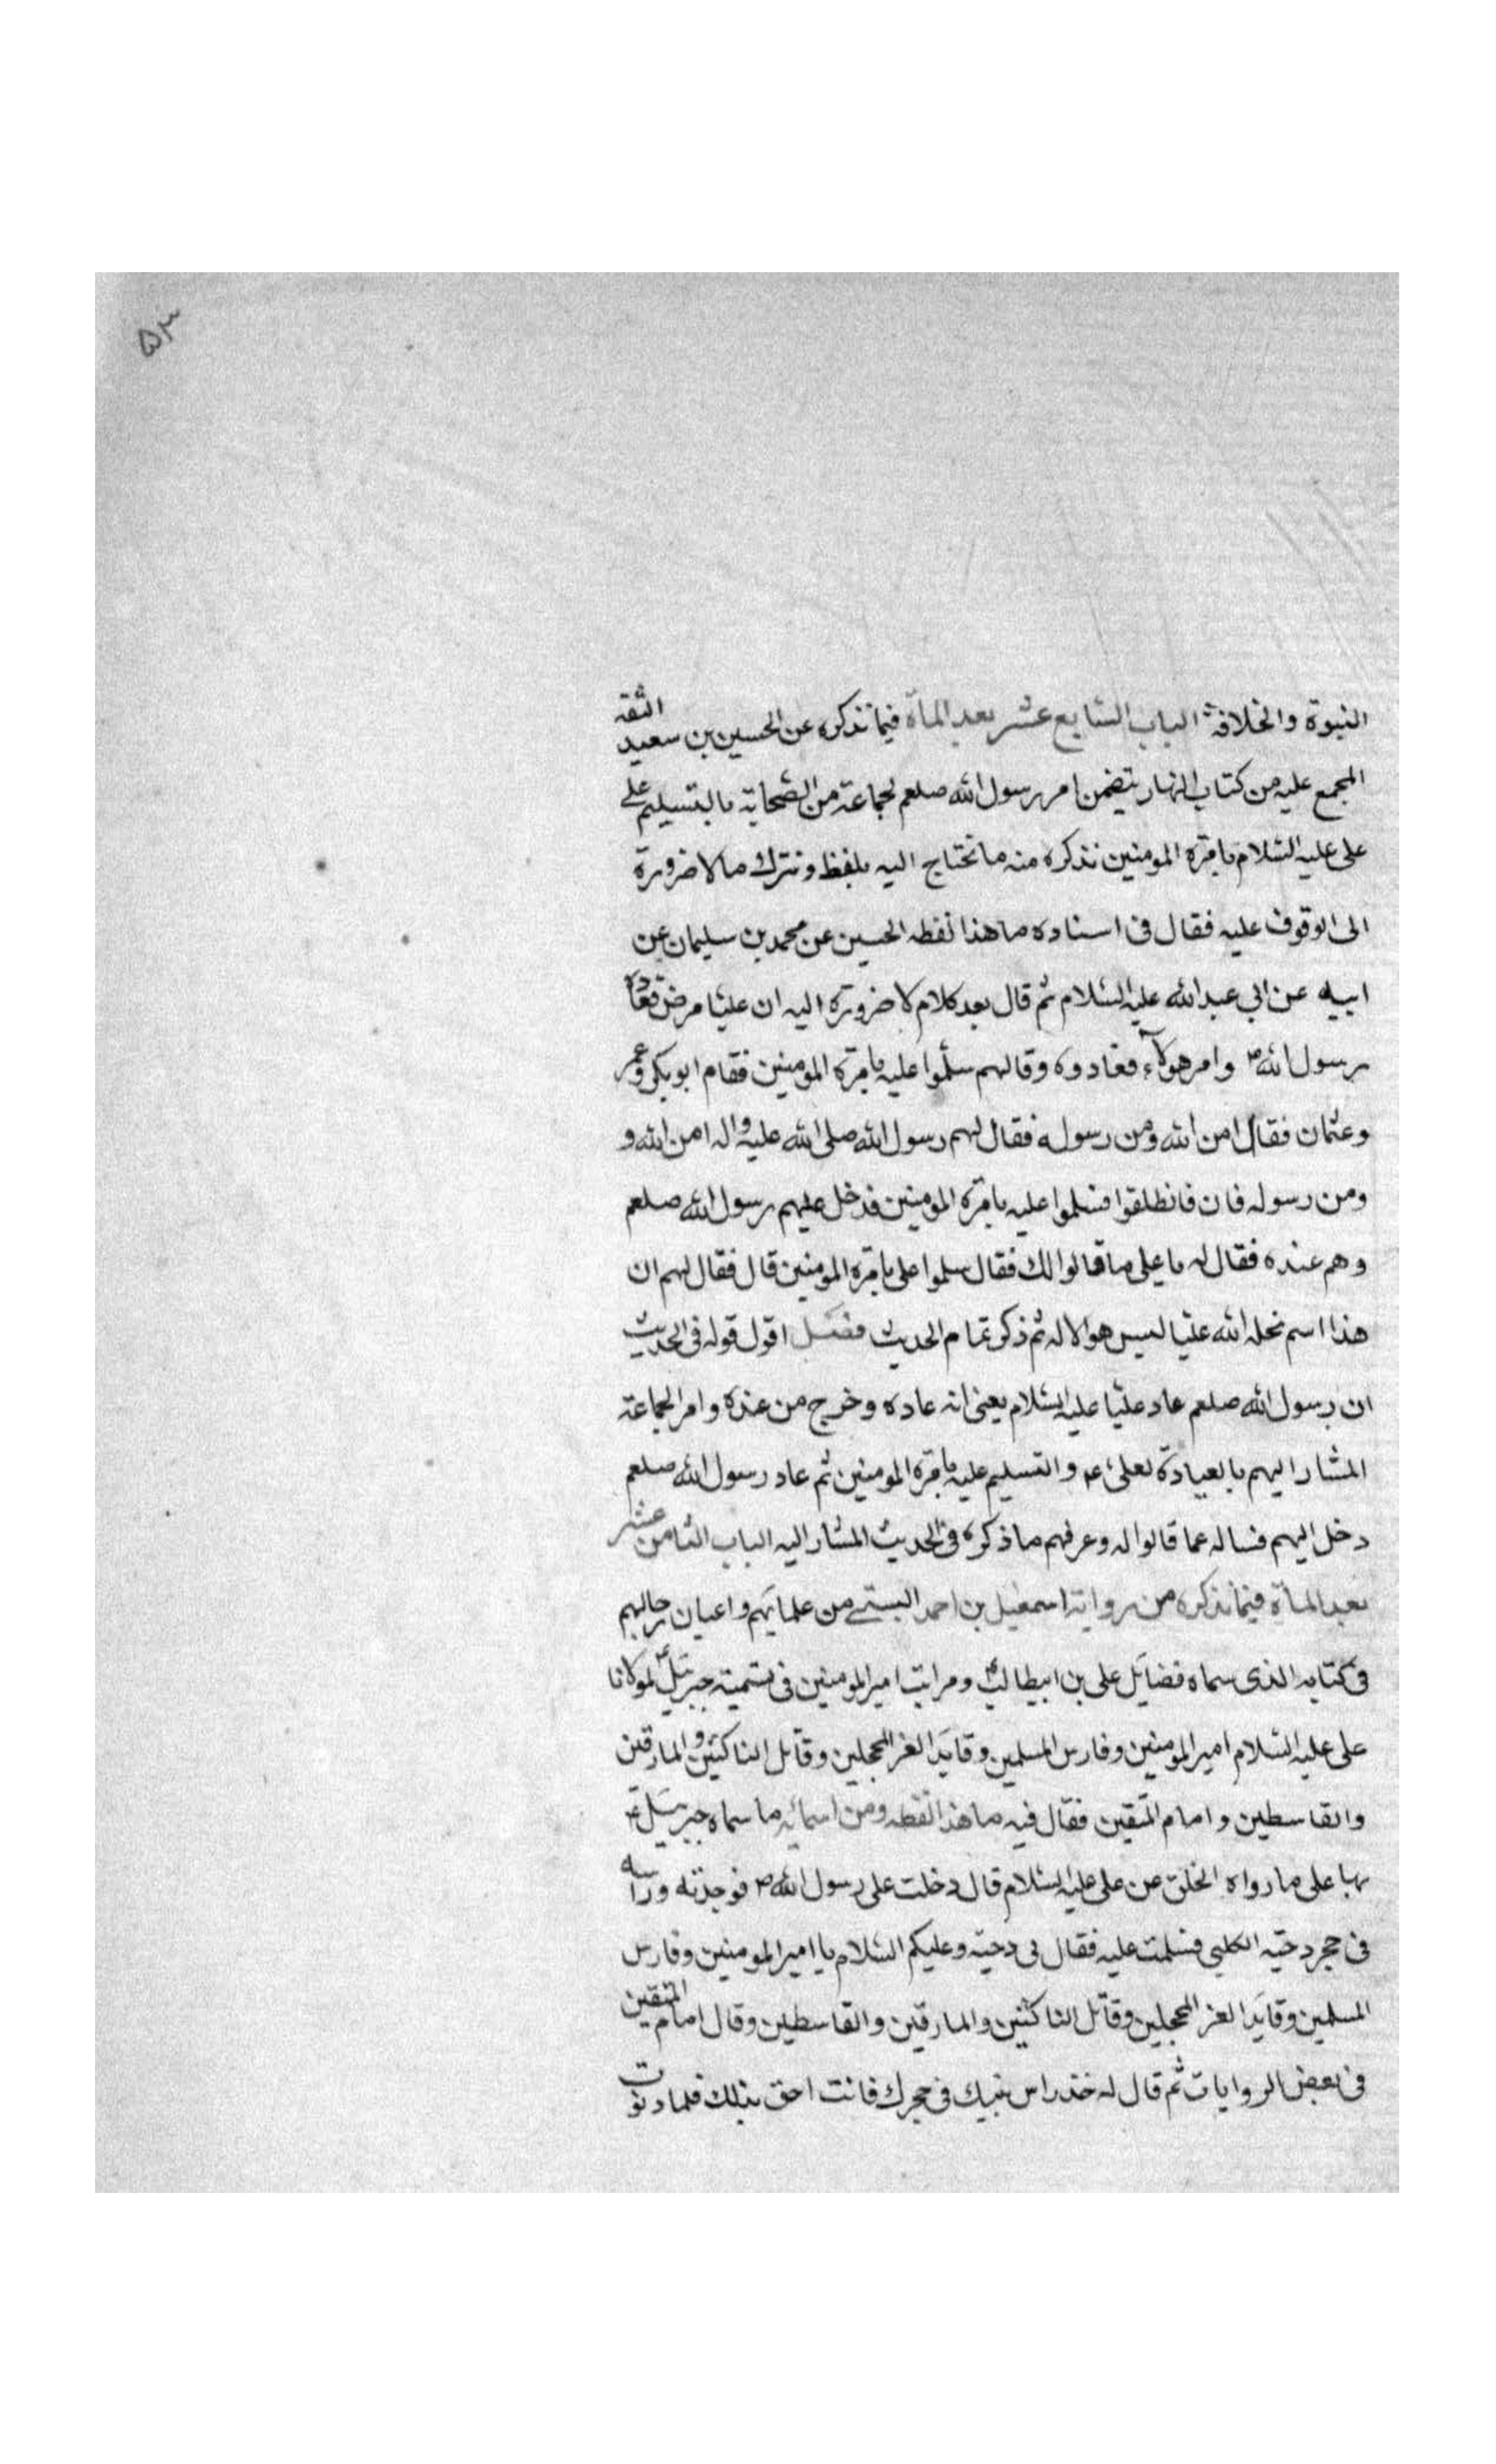 ۵۳
النبوة والخلافة الباب السابع عشر بعد المأة فيما نذكره عن الحسين بن سعيد الثقة
المجمع عليه من كتاب البهار يتضمن امر رسول الله صلعم لجماعة من الصحابة بالتسليم على
على عليه السلام بامرة المومنين نذكره منه ما نحتاج اليه بلفظ ونترك ما لا ضرورة
الى الوقوف عليه فقال فى اسناده ما هذا لفظه الحسين عن محمد بن سليمان عن
ابيه عن ابي عبدالله عليه السلام ثم قال بعد كلام لا ضرورة اليه ان عليا مرض فعاده
رسول الله ص وامر هولاء فعادوه وقالهم سلموا عليه بامرة المومنين فقام ابوبكر وعمر
وعثمان فقال امن الله ومن رسوله فقال لهم رسول الله صلى الله عليه واله امن الله و
ومن رسوله فان فانطلقوا فسلموا عليه بامرة المومنين فدخل عليهم رسول الله صلعم
وهم عنده فقال له يا على ما قالوا لك فقال سلموا على بامرة المومنين قال فقال لهم ان
هذا اسم نحله الله عليا ليس هو الا له ثم ذكر تمام الحديث فصل اقول قوله فى الحديث
ان رسول الله صلعم عاد عليا عليه السلام يعنى انه عاده وخرج من عنده وامر الجماعة
المشار اليهم بالعيادة لعلى ع والتسليم عليه بامرة المومنين ثم عاد رسول الله صلعم
دخل اليهم فساله عما قالوا له وعرفهم ما ذكره فى الحديث المشار اليه الباب الثامن عشر
بعد المأة فيما نذكره من رواية اسمعيل بن احمد البستى من علمايهم واعيان رجالهم
فى كتابه الذى سماه فضايل على بن ابيطالب ع ومراتب امير المومنين فى تسمية جبرئيل ع لمولانا
على عليه السلام امير المومنين وفارس المسلمين وقايد الغر المحجلين وقاتل الناكثين والمارقين
والقاسطين وامام المتقين فقال فيه ما هذا لفظه ومن اسمائه ما سماه جبرئيل ع
بها على ما رواه الخلق عن على عليه السلام قال دخلت على رسول الله ص فوجدته وراسه
فى حجر دحيه الكلبي فسلمت عليه فقال لى دحية وعليكم السلام يا امير المومنين وفارس
المسلمين وقايد الغر المحجلين وقاتل الناكثين والمارقين والقاسطين وقال امام المتقين
فى بعض الروايات ثم قال له خذ راس نبيك فى حجرك فانت احق بذلك فلما دنوت